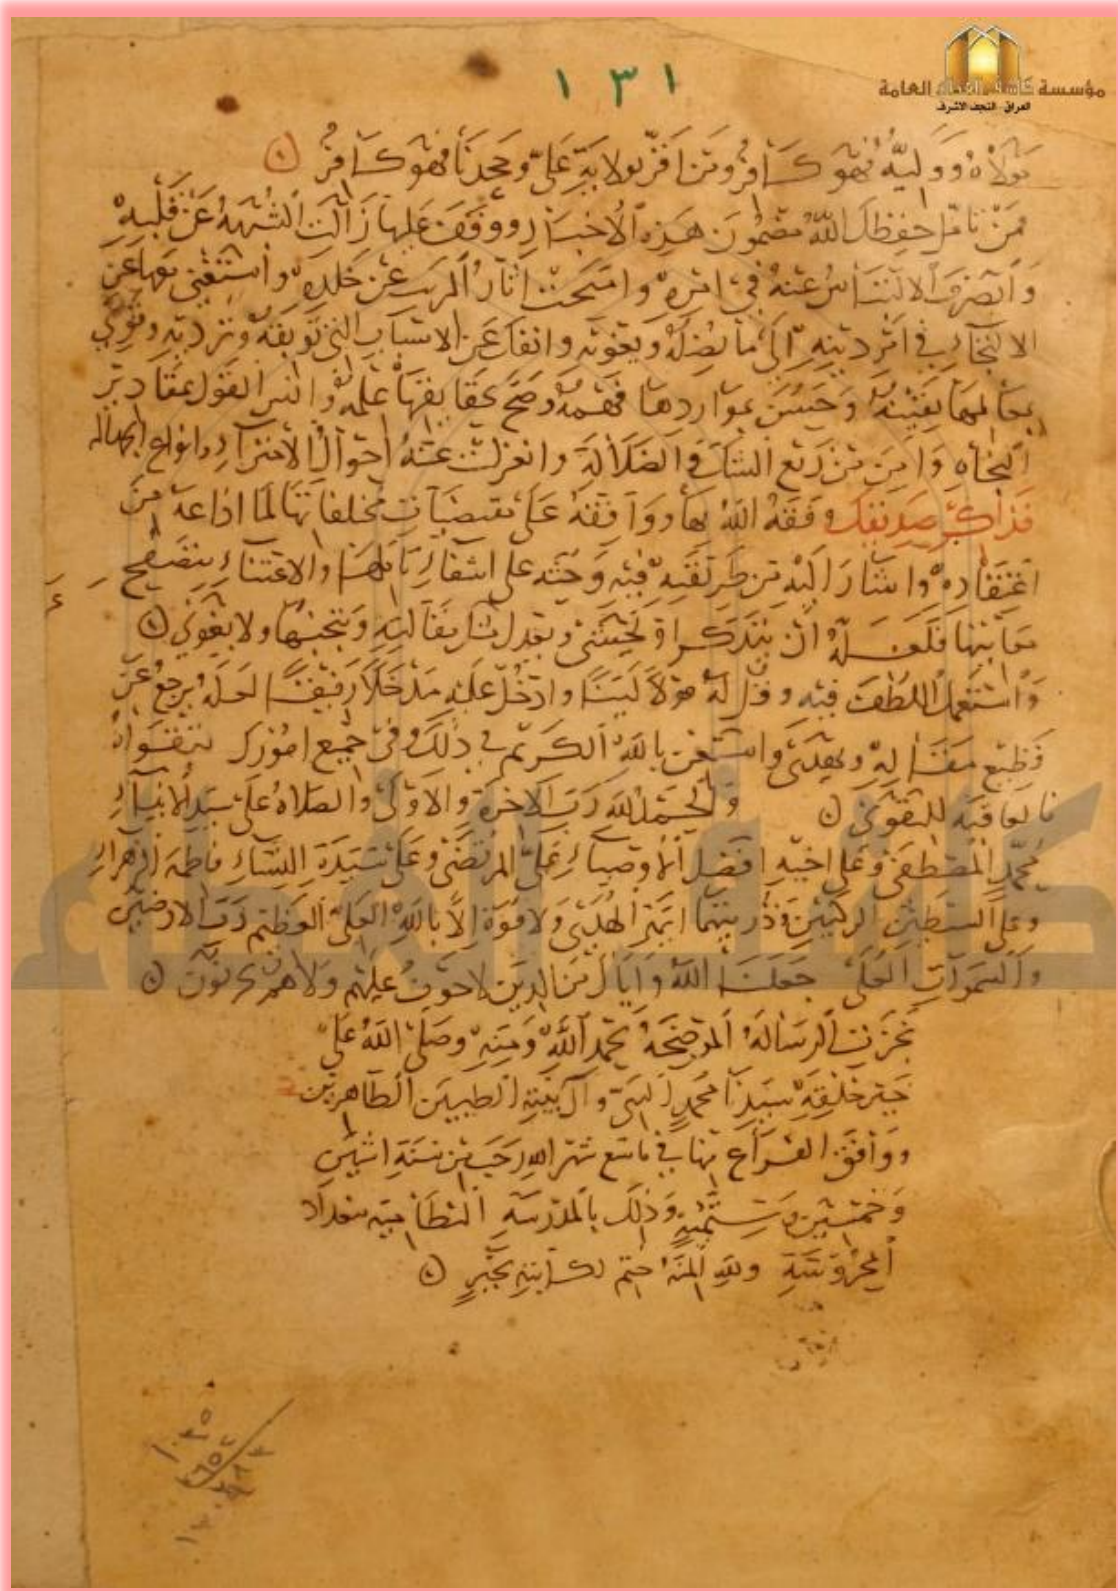 مؤسسة كاشف الغطاء العامة
العراق - النجف الاشرف
١٣١
مولاه ووليه فهو كافر ومن اقر بولاية علي وجحدنا فهو كافر
فمن تامل حفظك الله مضمون هذه الاخبار ووقف عليها زالت الشبهة عن قلبه
وانصرف الالتباس عنه في امره وامتحت اثار الريب عن خلده واستغنى بها عن
الالتجاء في امر دينه الى ما يضله ويغويه وانفك عن الاسباب التي توبقه وترديه وقوي
بمعالمها يقينه وحسن بمواردها فهمه وصح بحقايقها علمه والتبر القول بمقادير
النجاه وامن من زيغ الشك والضلالة وانعزلت عنه احوال الاغترار وانواع الجهاله
فذاكر صديقك وفقه الله بها ووافقه على مقتضيات مخلفاتها لما اذاعه من
اعتقاده واشار اليه من طريقته فيه وحثه على استقراء تاملها والاعتناء بتصفح
معانيها فلعله ان يتذكر او يخشى ويعدل عن مقالته ويتجنبها ولا يغوى
واستعمل اللطف فيه وقل له قولا لينا وادخل عليه مدخلا رفيقا لعله يرجع عن
فظيع مقاله ويهتدى واستعن بالله الكريم في ذلك وفي جميع امورك بتقواه
فالعاقبه للتقوى والحمد لله رب الاخرة والاولى والصلاة على سيد الانبياء
محمد المصطفى وعلى اخيه افضل الاوصياء علي المرتضى وعلى سيدة النساء فاطمه الزهراء
وعلى السبطين الزكيين وذريتهما ايمة الهدى ولا قوة الا بالله العلي العظيم رب الارضين
والسموات العلى جعلنا الله واياك من الذين لا خوف عليهم ولا هم يحزنون
نجزت الرسالة الموضحة بحمد الله ومنه وصلى الله على
خير خلقه سيدنا محمد النبي وال بيته الطيبين الطاهرين
ووافق الفراغ منها في تاسع شهر الله رجب من سنة اثنين
وخمسين وستمية وذلك بالمدرسة النظامية ببغداد
المحروسة ولله المنة ختم لكاتبه بخير
١٠٣٥
٦٥٢